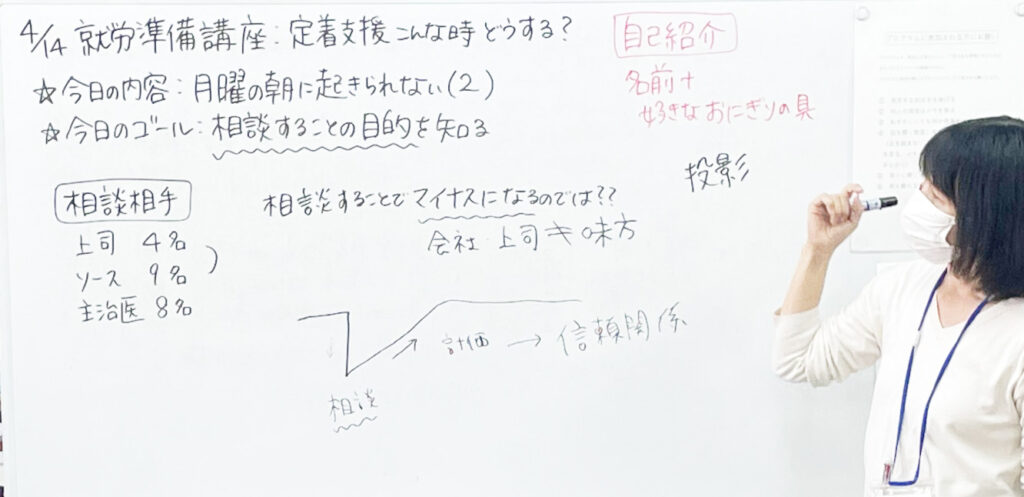 4/14 就労準備講座:定着支援 こんな時どうする?
☆今日の内容:月曜の朝に起きられない(2)
☆今日のゴール:相談することの目的を知る
自己紹介
名前+
好きなおにぎりの具
相談相手
上司 4名
ソース 9名
主治医 8名
相談することでマイナスになるのでは??
会社・上司キ味方
投影
評価 → 信頼関係
相談